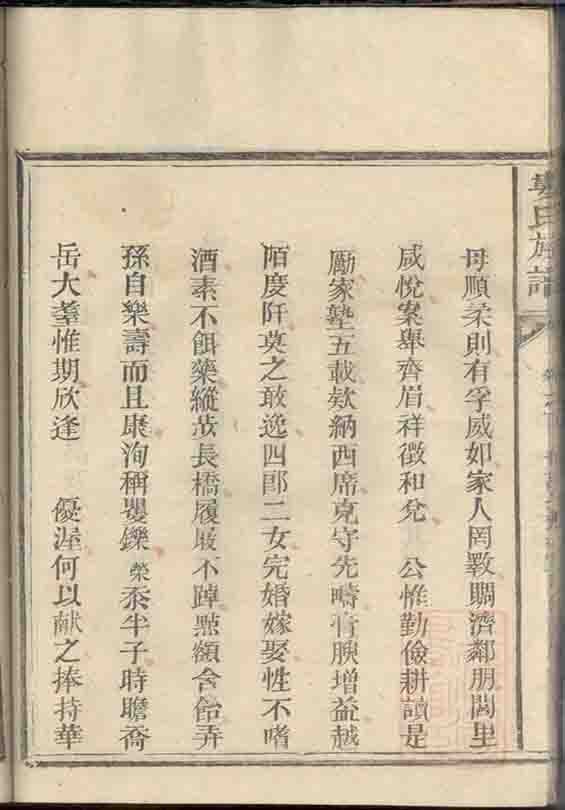 母順柔則有孚威如家人罔斁賙濟鄰朋閭里
咸悅案舉齊眉祥徵和兌　公惟勤儉耕讀是
勵家塾五載欵納西席克守先疇膏腴增益越
陌度阡莫之敢逸四郎二女完婚嫁娶性不嗜
酒素不餌藥縱登長橋履屐不踔點額含飴弄
孫自樂壽而且康洵稱矍鑠榮忝半子時瞻喬
岳大耋惟期欣逢　優渥何以献之捧持華
氏族譜